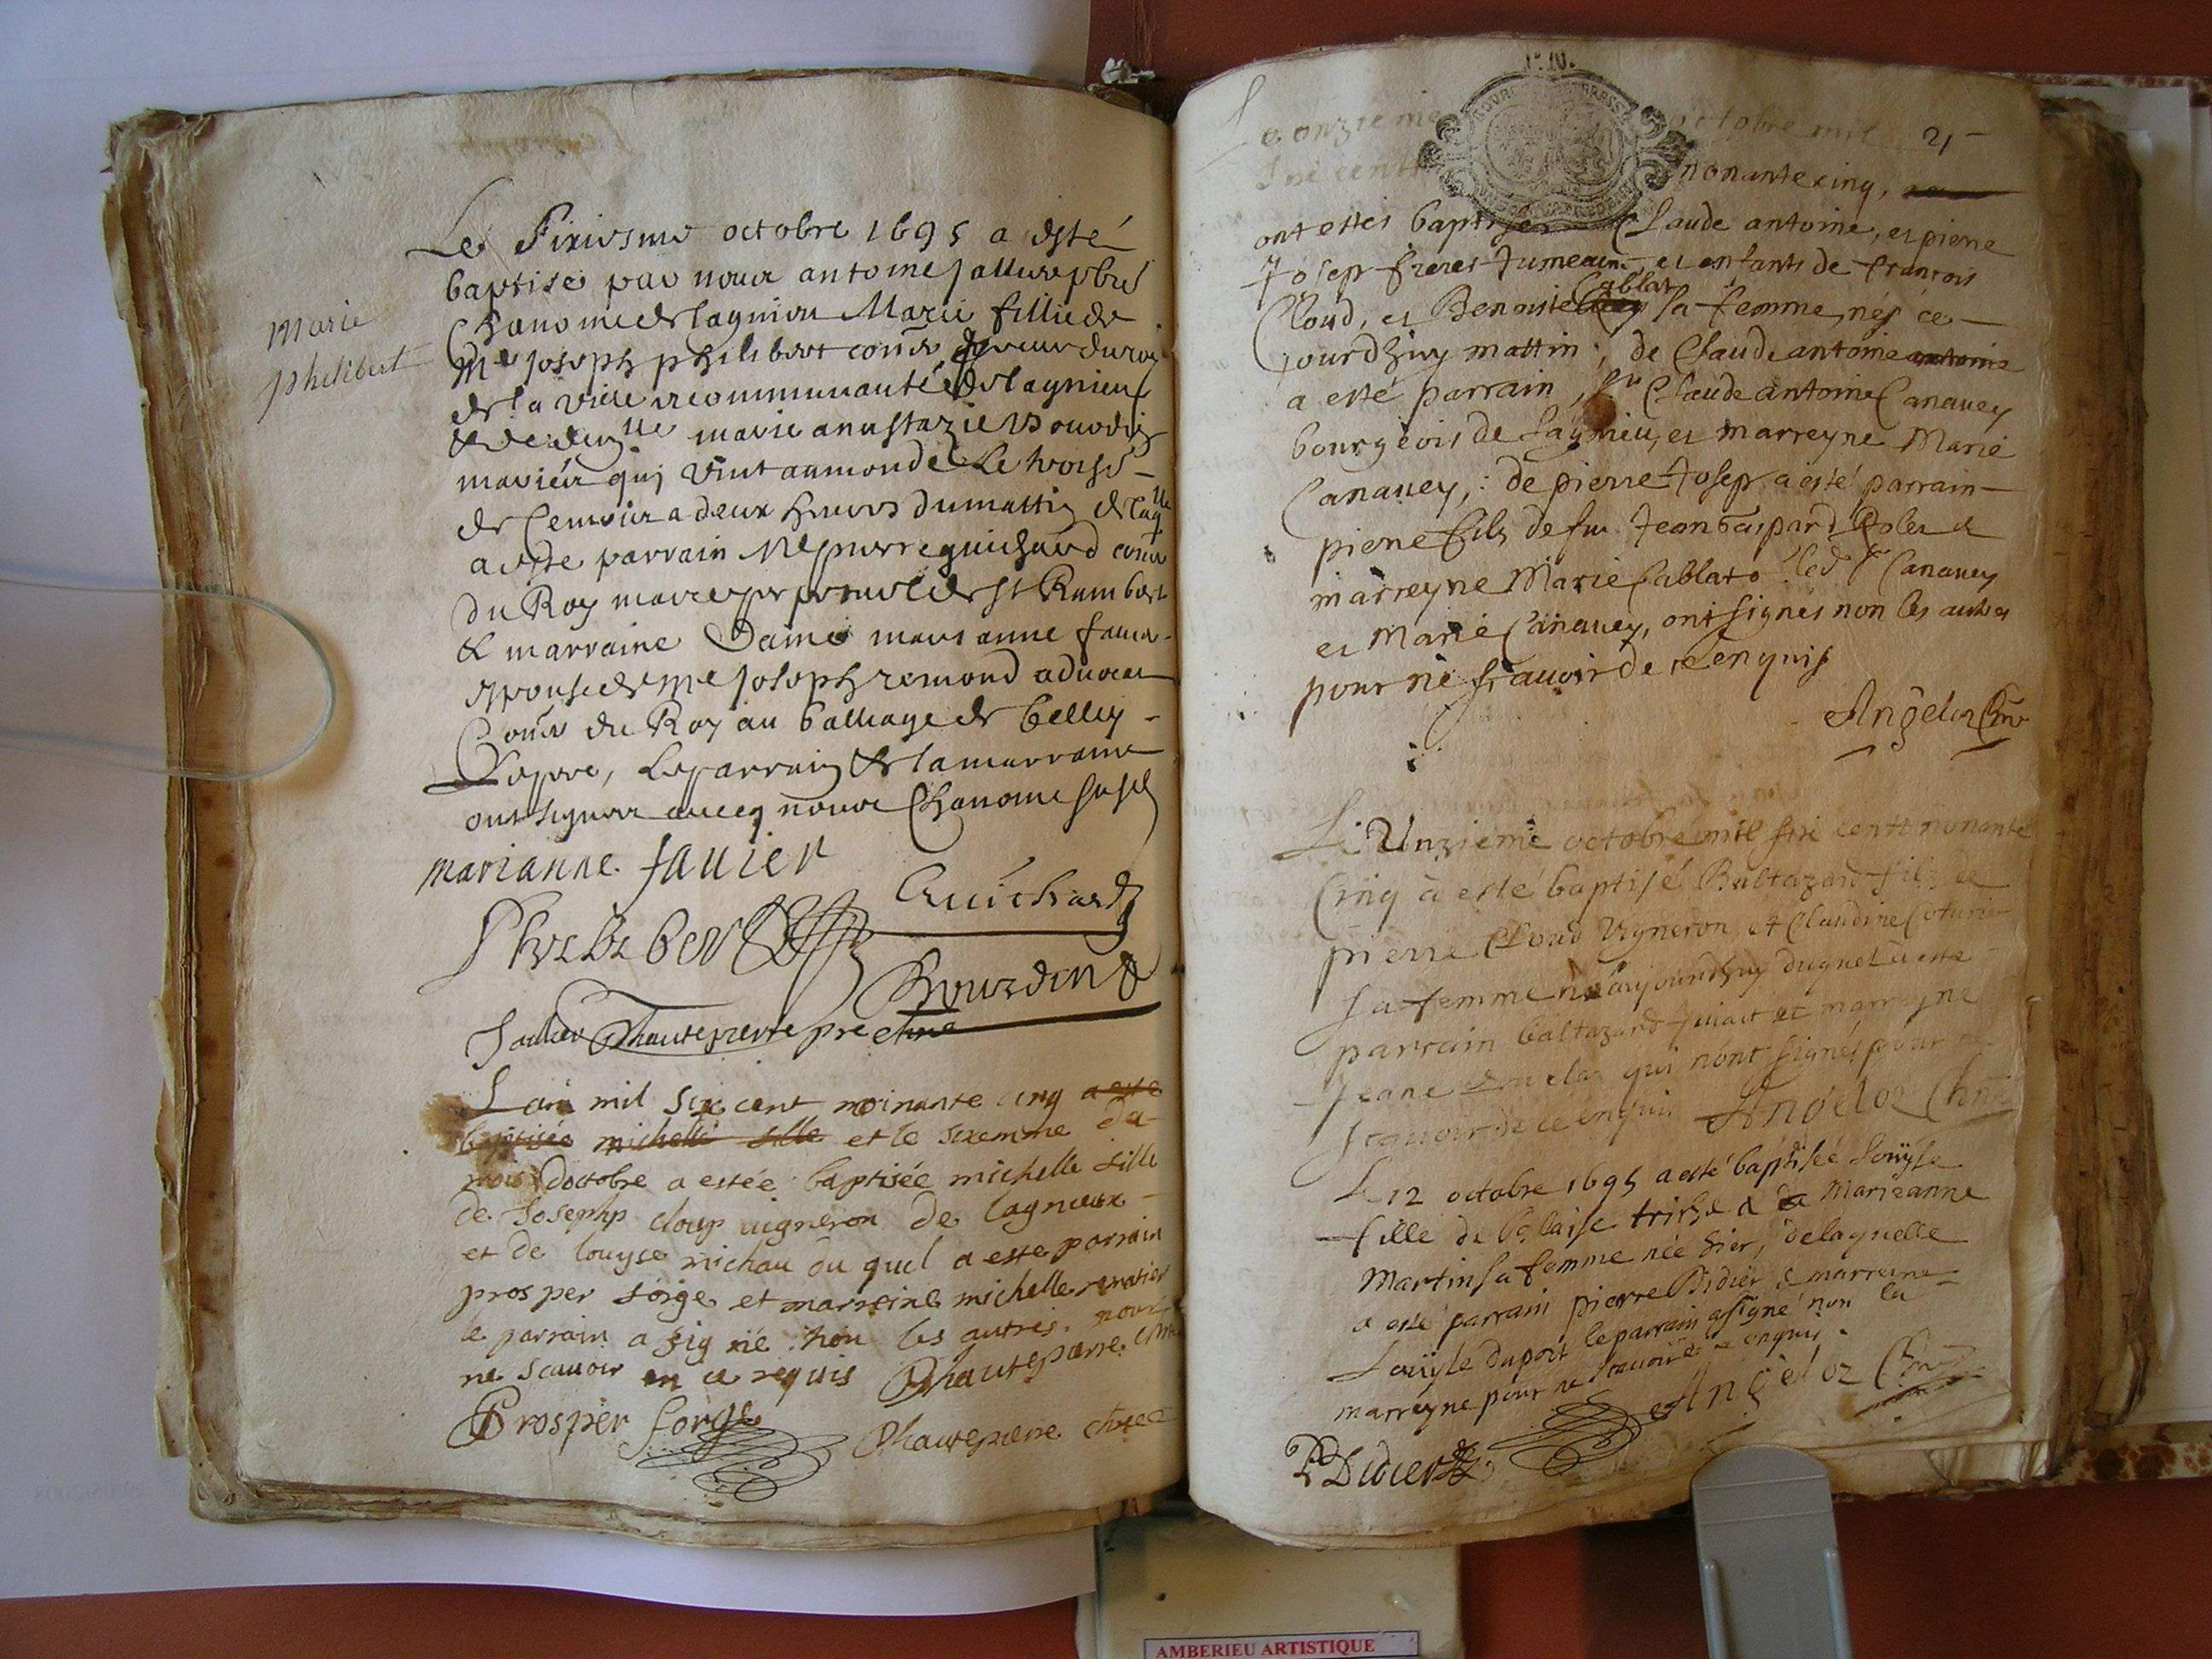 Marie
philibert
Le Sixiesme octobre 1695 a esté
baptisée par nous antoine Jallier pbre
Chanoine de lagnieu Marie fillie de
Me Joseph philibert conser procureur du roy
de la ville et communauté de lagnieu
& de dlle marie anastazie Bourdin
mariés qui vint au monde le trois
de Ce mois a deux heures du mattin de laqlle
a este parrain Me pierre guichard conser
du Roy maire de St Rambert
& marraine Dame marianne favier
espouse de Me Joseph remond advocat
Conser du Roy au balliage de belley
Le pere, le parrain & la marraine
ont signer avecq nous Chanoine susd
marianne favier
Guichard
Philibert
Bourdin
Jallier Dhautepierre pre chne
Lan mil six cent noinante cinq a este
baptisée michelle fille et le sixemme du
mois doctobre a estée baptisée michelle fille
de Josephp cloup vigneron de lagnieux
et de louyse michau du quel a este parrain
prosper forge et marreine michelle renatier
le parrain a signé non les autres
ne scavoir en ce requis Dhautepierre chne
Prosper forge
Dhautepierre chne
21
Le onzieme octobre mil
Six cent nonante cinq,
ont estes baptises Claude antoine, et pierre
Josep freres Jumeaux et enfants de francois
Cloud, et Benoiste Cablat sa femme, nés ce
jourdhuy mattin; de Claude antoine antoine
a esté parrain, Sr Claude antoine Canavey
bourgeois de lagnieu, et marreyne Marie
Canavey; de pierre Josep a esté parrain
pierre fils de fu Jean Gaspard Rolet &
marreyne Marie Cablat. led Sr Canavey
et Marie Canavey, ont signés non les autres
pour ne scavoir de ce enquis
Angeloz Chne
Le Unzieme octobre mil six cent nonante
Cinq a esté baptisé Baltazard fils de
pierre Cloud Vigneron et Claudine Coturier
sa femme né aujourdhuy duquel a este
parrain baltazard et marreyne
Jeane qui nont signés pour ne
scavoir de ce enquis Angeloz Chne
Le 12 octobre 1695 a esté baptisée Louyse
fille de Blaise & de Marieanne
Martin sa femme née hier, de laquelle
a esté parrain pierre Didier & marreine
Louyse duport le parrain a signé non la
marreyne pour ne scavoir de ce enquis.
Angeloz Chne
P Didier
AMBERIEU ARTISTIQUE